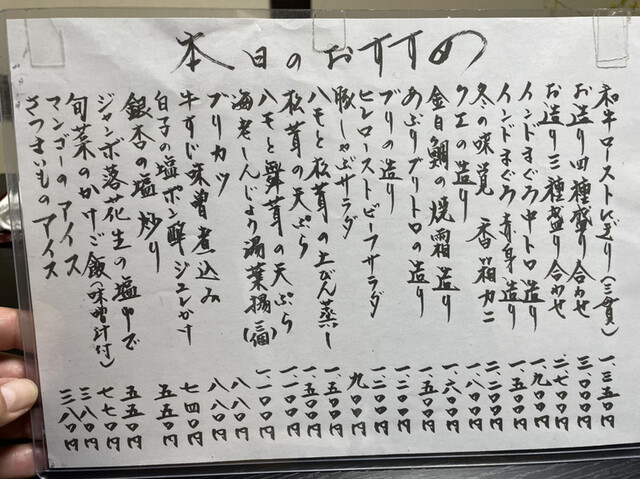 本日のおすすめ
和牛ローストにぎり(三貫) 一、三五〇円
お造り四種盛り合わせ 三、〇〇〇円
お造り三種盛り合わせ 二、七〇〇円
インドまぐろ中トロ造り 一、九〇〇円
インドまぐろ赤身造り 一、五〇〇円
冬の味覚 香箱カニ 二、二〇〇円
クエの造り 一、八〇〇円
金目鯛の焼霜造り 一、六〇〇円
あぶりブリトロの造り 一、五〇〇円
ブリの造り 一、二〇〇円
ヒレローストビーフサラダ 一、二〇〇円
豚しゃぶサラダ 九〇〇円
ハモと松茸の土びん蒸し 一、五〇〇円
松茸の天ぷら 一、五〇〇円
ハモと舞茸の天ぷら 一、一〇〇円
海老しんじょう湯葉揚(二個) 一、一〇〇円
ブリカツ 八八〇円
牛すじ味噌煮込み 八八〇円
白子の塩ポン酢ジュレかけ 七四〇円
銀杏の塩炒り 五五〇円
ジャンボ落花生の塩ゆで 五五〇円
旬菜のかけご飯(味噌汁付) 七七〇円
マンゴーのアイス 三八〇円
さつまいものアイス 三八〇円